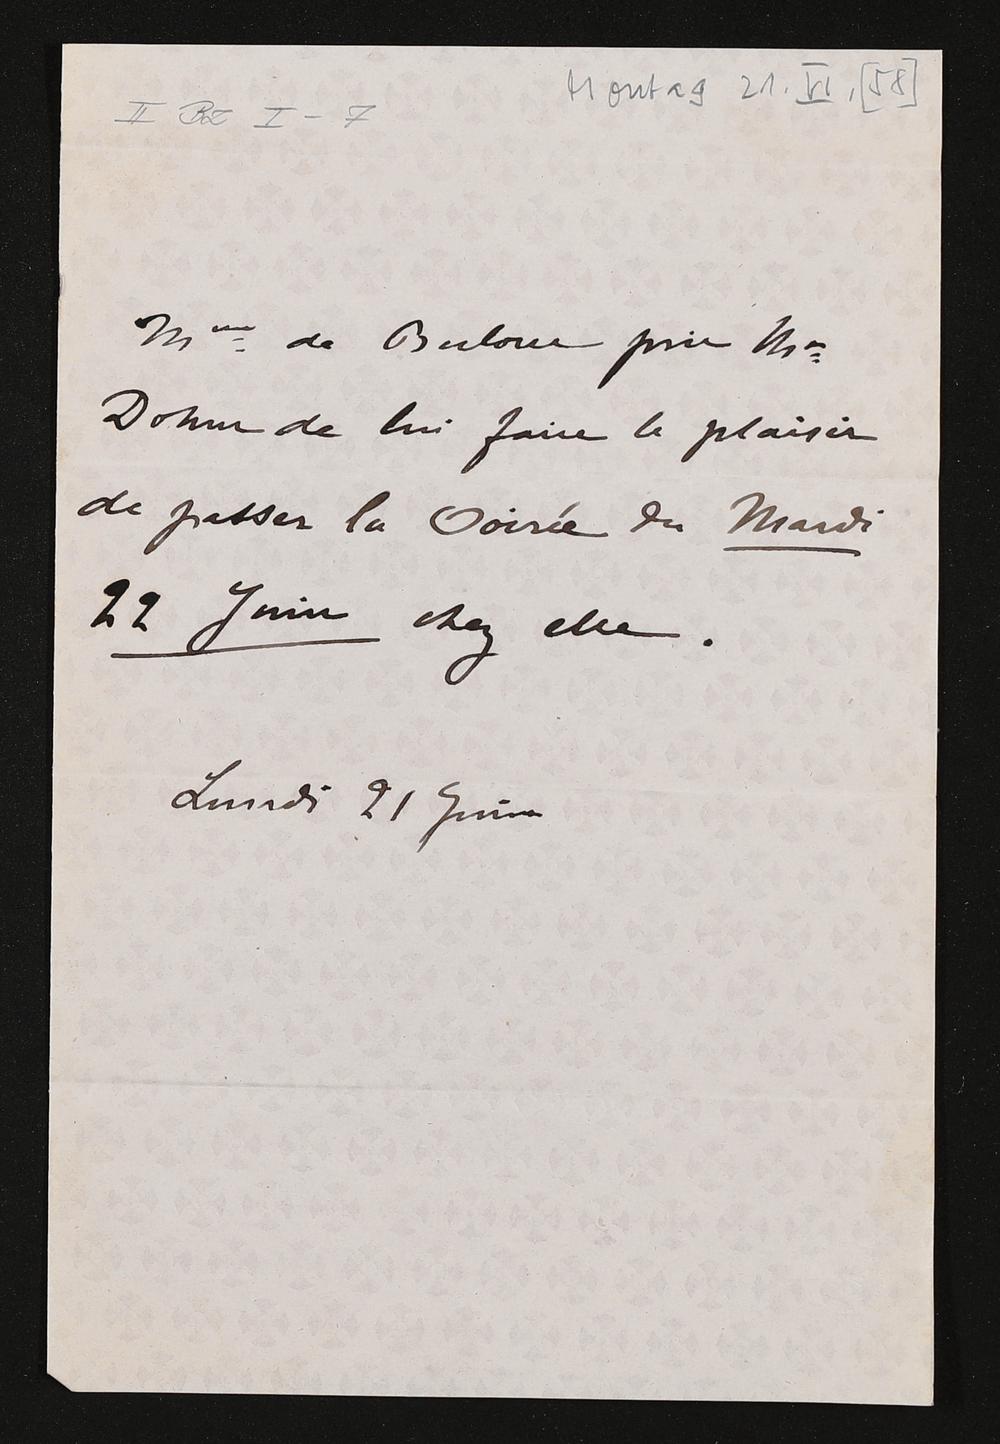 Montag 21. VI. [58]
II Bz I - 7
Mme de Bulow prie Mr
Dohm de lui faire le plaisir
de passer la Soirée du Mardi
22 Juin chez elle.
Lundi 21 Juin